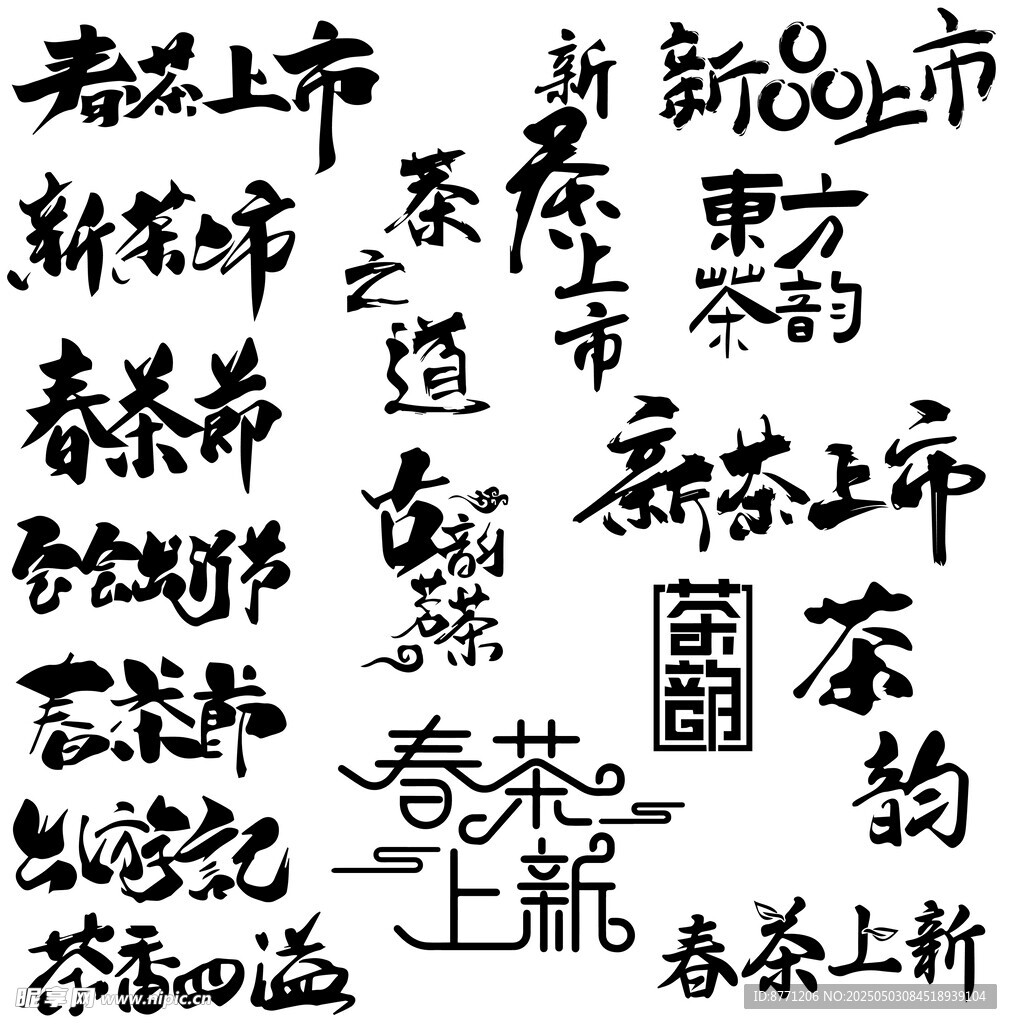 春茶上市
新茶上市
春茶節
出游节
春茶節
出游記
茶香四溢
茶之道
古韵茗茶
春茶上新
新茶上市
新品上市
東方茶韵
新茶上市
茶韵
茶韵
春茶上新
昵享网 www.nipic.cn
ID:8771206 NO:20250503084518939104